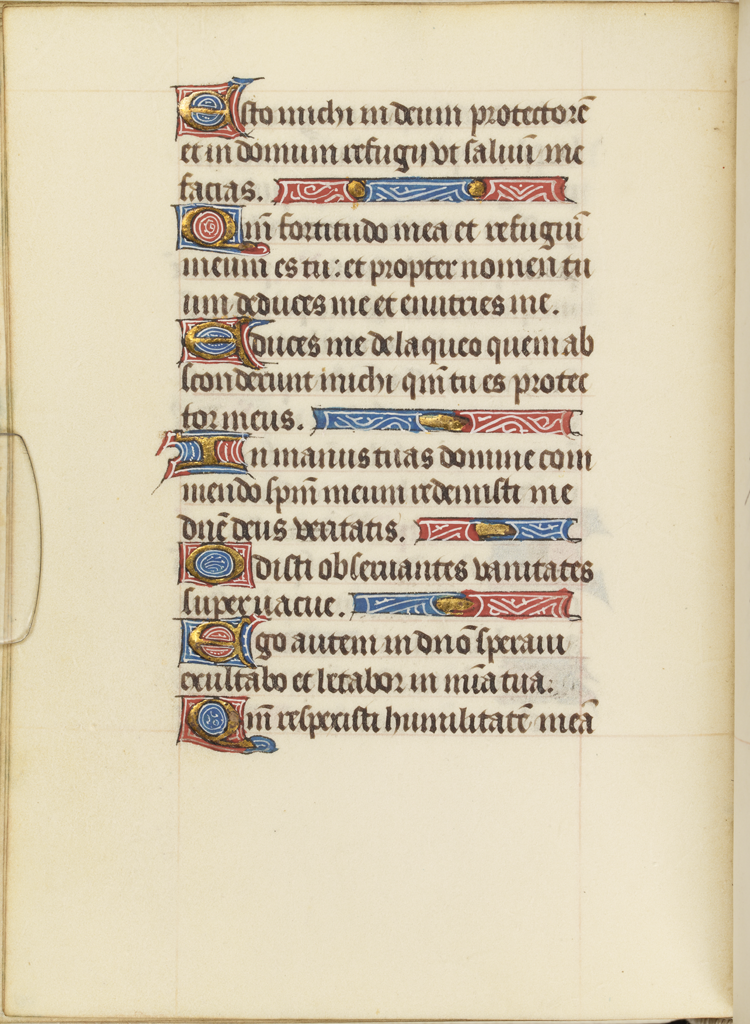 Esto michi in deum protectorē
et in domum refugij vt saluū me
facias.
Qm̄ fortitudo mea et refugiū
meum es tu: et propter nomen tu
um deduces me et enutries me.
Educes me de laqueo quem ab
sconderunt michi qm̄ tu es protec
tor meus.
In manus tuas domine com
mendo spm̄ meum redemisti me
dn̄e deus veritatis.
Odisti obseruantes vanitates
superuacue.
Ego autem in dn̄o speraui
exultabo et letabor in mīa tua.
Qm̄ respexisti humilitatē meā